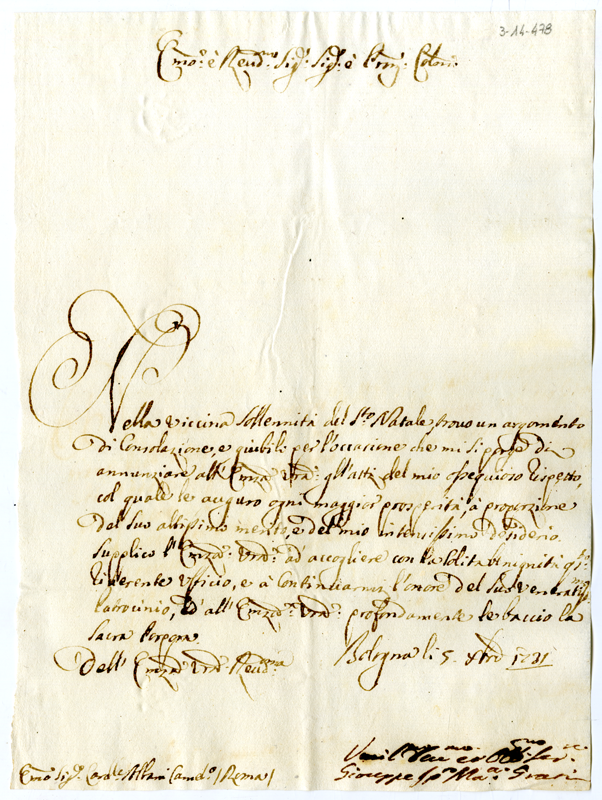 3-14-478
Emo: e Reud:mo Sig: Sig: e
Nella viccina Sollennità del Sto Natale trovo un argomento
di Consolazione, e giubilo per l'occasione che mi si porge di
annunziare all' Emza: Vra: gl'atti del mio ossequioso rispetto,
col quale le auguro ogni maggior prosperità, à proporzione
del suo altissimo merito, e del mio intensissimo desiderio.
Supplico l' Emza: Vra: ad' accogliere con la solita benignità
riverente ufficio, e à continuarmi l'onore del suo
Patrocinio, ed' all' Emza: Vra: profondamente le baccio la
Sacra Porpora.
Dell' Emza: Vra: Reud:ma Bologna li 5. Xbre 1731
Giuseppe Ma:
Emo Sig: Card:le Albani Cam:o / Roma /